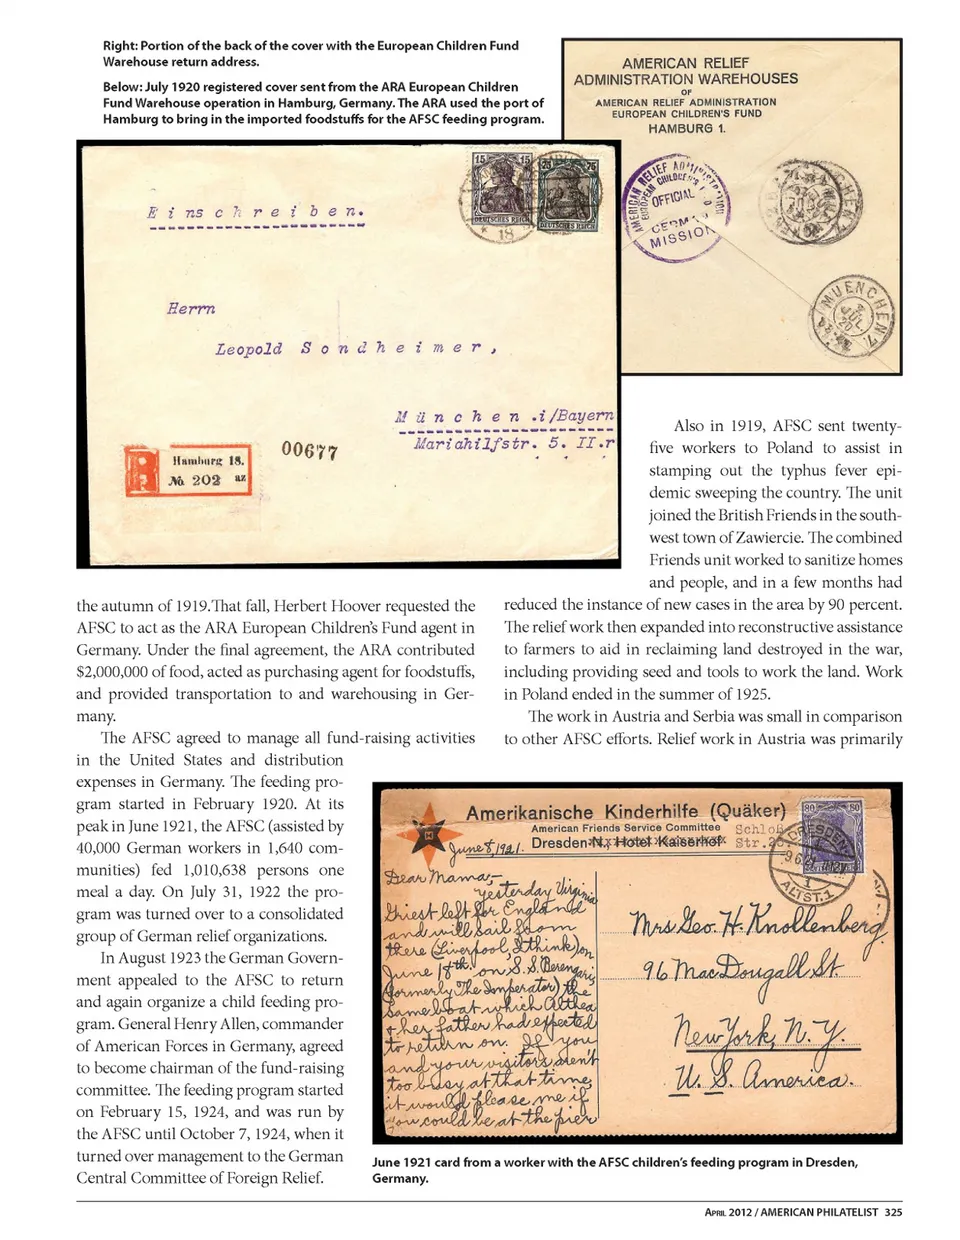 Right: Portion of the back of the cover with the European Children Fund
Warehouse return address.
Below: July 1920 registered cover sent from the ARA European Children
Fund Warehouse operation in Hamburg, Germany. The ARA used the port of
Hamburg to bring in the imported foodstuffs for the AFSC feeding program.
AMERICAN RELIEF
ADMINISTRATION WAREHOUSES
OF
AMERICAN RELIEF ADMINISTRATION
EUROPEAN CHILDREN'S FUND
HAMBURG 1.
AMERICAN RELIEF ADMINISTRATION
EUROPEAN CHILDREN'S FUND
OFFICIAL
GERMAN
MISSION
MUENCHEN
MUENCHEN 7.
JUL
20
15 15
DEUTSCHES REICH
75 75
DEUTSCHES REICH
18
Einschreiben.
Herrn
Leopold Sondheimer,
München .i/Bayern
Mariahilfstr. 5. II.r
R
Hamburg 18.
No 202 az
00677
the autumn of 1919.That fall, Herbert Hoover requested the
AFSC to act as the ARA European Children's Fund agent in
Germany. Under the final agreement, the ARA contributed
$2,000,000 of food, acted as purchasing agent for foodstuffs,
and provided transportation to and warehousing in Ger-
many.
The AFSC agreed to manage all fund-raising activities
in the United States and distribution
expenses in Germany. The feeding pro-
gram started in February 1920. At its
peak in June 1921, the AFSC (assisted by
40,000 German workers in 1,640 com-
munities) fed 1,010,638 persons one
meal a day. On July 31, 1922 the pro-
gram was turned over to a consolidated
group of German relief organizations.
In August 1923 the German Govern-
ment appealed to the AFSC to return
and again organize a child feeding pro-
gram. General Henry Allen, commander
of American Forces in Germany, agreed
to become chairman of the fund-raising
committee. The feeding program started
on February 15, 1924, and was run by
the AFSC until October 7, 1924, when it
turned over management to the German
Central Committee of Foreign Relief.
Also in 1919, AFSC sent twenty-
five workers to Poland to assist in
stamping out the typhus fever epi-
demic sweeping the country. The unit
joined the British Friends in the south-
west town of Zawiercie. The combined
Friends unit worked to sanitize homes
and people, and in a few months had
reduced the instance of new cases in the area by 90 percent.
The relief work then expanded into reconstructive assistance
to farmers to aid in reclaiming land destroyed in the war,
including providing seed and tools to work the land. Work
in Poland ended in the summer of 1925.
The work in Austria and Serbia was small in comparison
to other AFSC efforts. Relief work in Austria was primarily
Amerikanische Kinderhilfe (Quäker)
American Friends Service Committee
Dresden-N., Hotel Kaiserhof
Schloß
Str.
80 80
DRESDEN
ALTST. 1
June 8, 1921.
Dear Mama:-
Yesterday Virginia
Griest left for England
and will sail from
there (Liverpool, I think) on
June 18th on S.S. Berengaria
(formerly The Imperator) the
same boat at which Althea
& her father had expected
to return on. If you
and your visitors aren't
too busy at that time,
it would please me if
you could be at the pier
Mrs Geo. H. Knollenberg
96 MacDougall St
New York, N.Y.
U.S. America.
June 1921 card from a worker with the AFSC children's feeding program in Dresden,
Germany.
APRIL 2012 / AMERICAN PHILATELIST 325